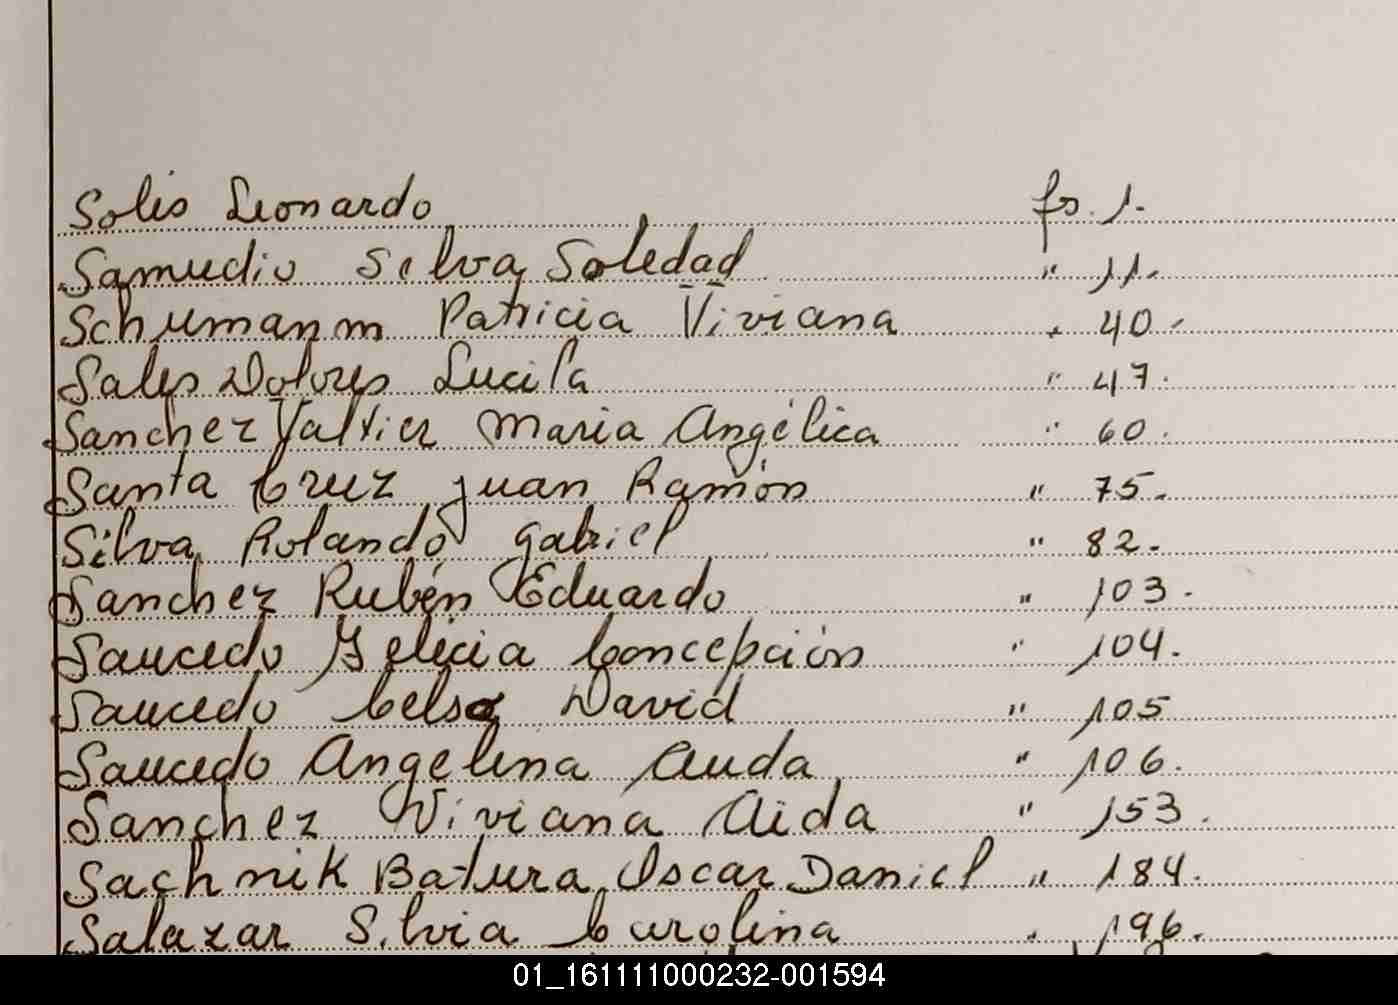 Solis Leonardo fs. 1.
Samudio Silva Soledad " 11.
Schumanm Patricia Viviana " 40.
Sales Dolores Lucila " 47.
Sanchez Valtier Maria Angélica " 60.
Santa Cruz Juan Ramón " 75.
Silva Rolando Gabriel " 82.
Sanchez Rubén Eduardo " 103.
Saucedo Felicia Concepción " 104.
Saucedo Celso David " 105
Saucedo Angelina Auda " 106.
Sanchez Viviana Aida " 153.
Sachnik Batura Oscar Daniel " 184.
Salazar Silvia Carolina " 196.
01_161111000232-001594